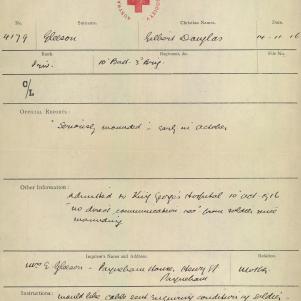 No. Surname. Christian Names. Date.
4179 Gleeson Gilbert Douglas 14-11-16
Rank. Regiment, &c. File No.
Priv. 10th Batt. 3rd Brig.
C/L
OFFICIAL REPORTS:
"Seriously wounded" early in October
Other Information:
admitted to King George's Hospital 10th Oct. 1916
"no direct communication rec'd" from soldier since
wounding
Inquirer's Name and Address. Relation.
Mrs E. Gleeson - Payneham House, Henry St Mother
Payneham
Instructions: would like cable sent enquiring condition of soldier